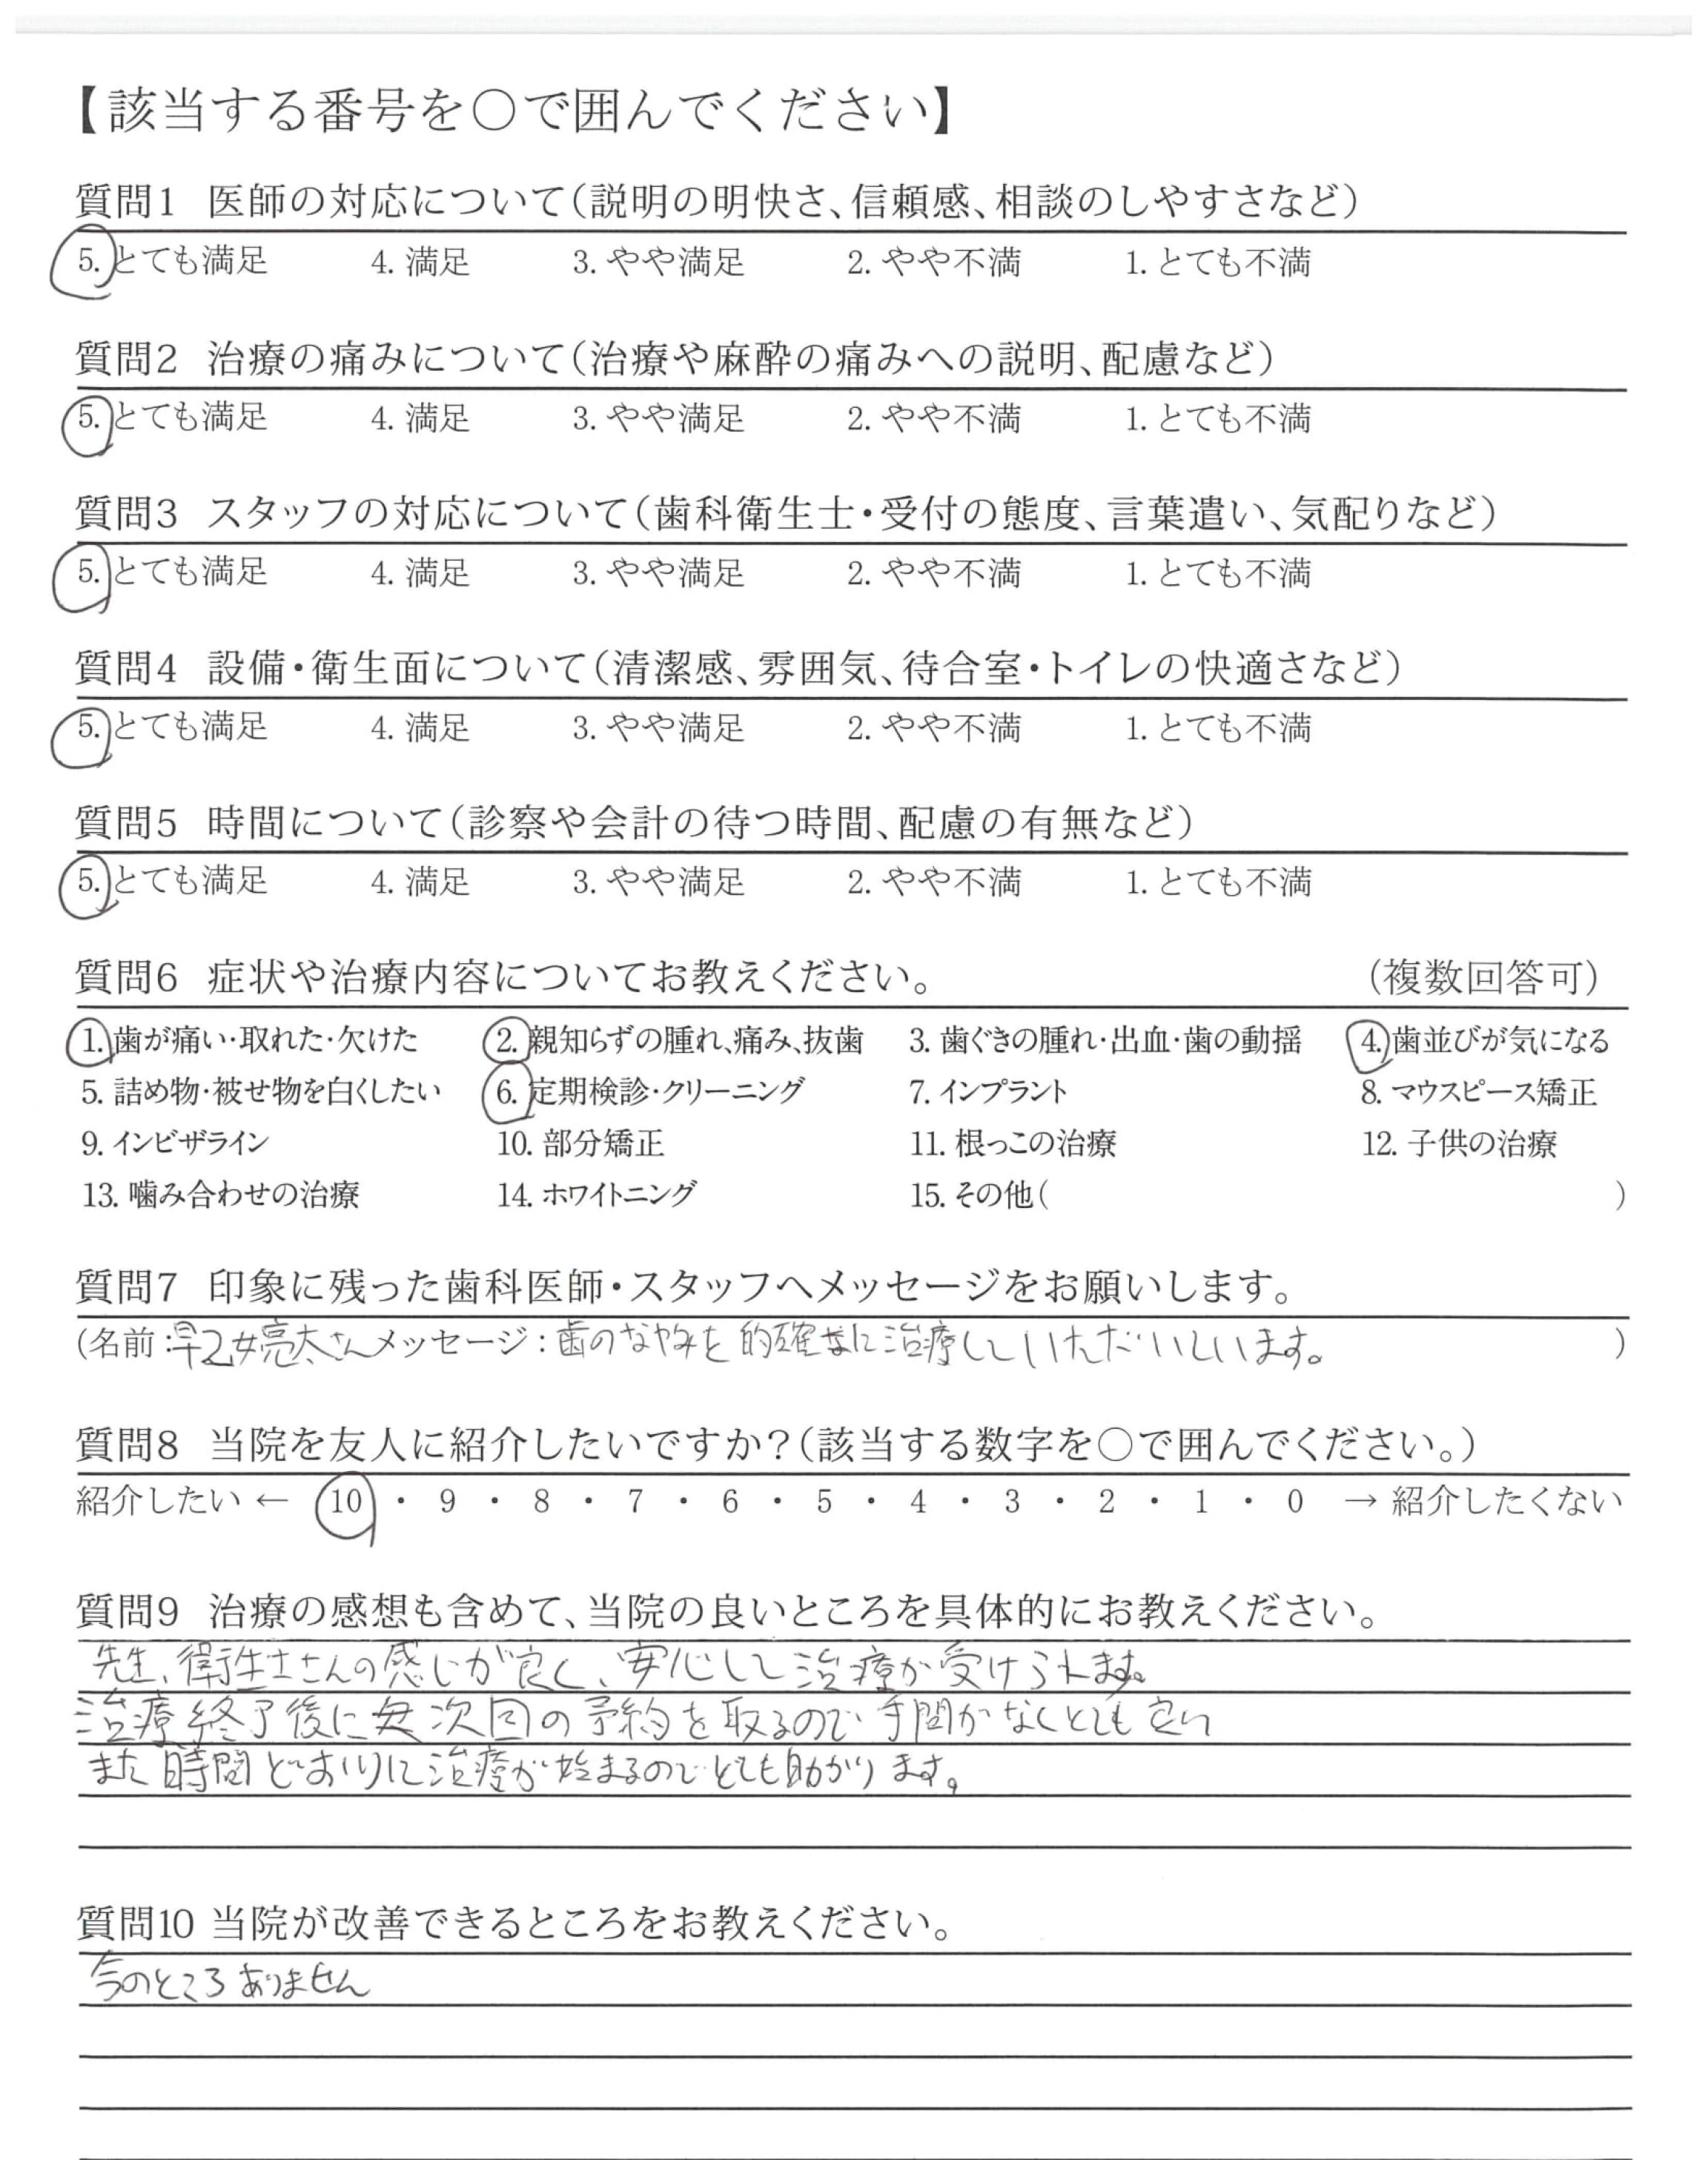 【該当する番号を○で囲んでください】
質問1 医師の対応について(説明の明快さ、信頼感、相談のしやすさなど)
5. とても満足 4. 満足 3. やや満足 2. やや不満 1. とても不満
質問2 治療の痛みについて(治療や麻酔の痛みへの説明、配慮など)
5. とても満足 4. 満足 3. やや満足 2. やや不満 1. とても不満
質問3 スタッフの対応について(歯科衛生士・受付の態度、言葉遣い、気配りなど)
5. とても満足 4. 満足 3. やや満足 2. やや不満 1. とても不満
質問4 設備・衛生面について(清潔感、雰囲気、待合室・トイレの快適さなど)
5. とても満足 4. 満足 3. やや満足 2. やや不満 1. とても不満
質問5 時間について(診察や会計の待つ時間、配慮の有無など)
5. とても満足 4. 満足 3. やや満足 2. やや不満 1. とても不満
質問6 症状や治療内容についてお教えください。 (複数回答可)
1. 歯が痛い・取れた・欠けた 2. 親知らずの腫れ、痛み、抜歯 3. 歯ぐきの腫れ・出血・歯の動揺 4. 歯並びが気になる
5. 詰め物・被せ物を白くしたい 6. 定期検診・クリーニング 7. インプラント 8. マウスピース矯正
9. インビザライン 10. 部分矯正 11. 根っこの治療 12. 子供の治療
13. 噛み合わせの治療 14. ホワイトニング 15. その他( )
質問7 印象に残った歯科医師・スタッフへメッセージをお願いします。
(名前:早乙女亮太さん メッセージ:歯のなやみを的確に治療していただいています。 )
質問8 当院を友人に紹介したいですか?(該当する数字を○で囲んでください。)
紹介したい ← 10 ・ 9 ・ 8 ・ 7 ・ 6 ・ 5 ・ 4 ・ 3 ・ 2 ・ 1 ・ 0 → 紹介したくない
質問9 治療の感想も含めて、当院の良いところを具体的にお教えください。
先生、衛生士さんの感じが良く、安心して治療が受けられます。
治療終了後に毎次回の予約を取るので手間がなくとても良い
また時間どおりに治療が始まるのでとても助かります。
質問10 当院が改善できるところをお教えください。
今のところありません